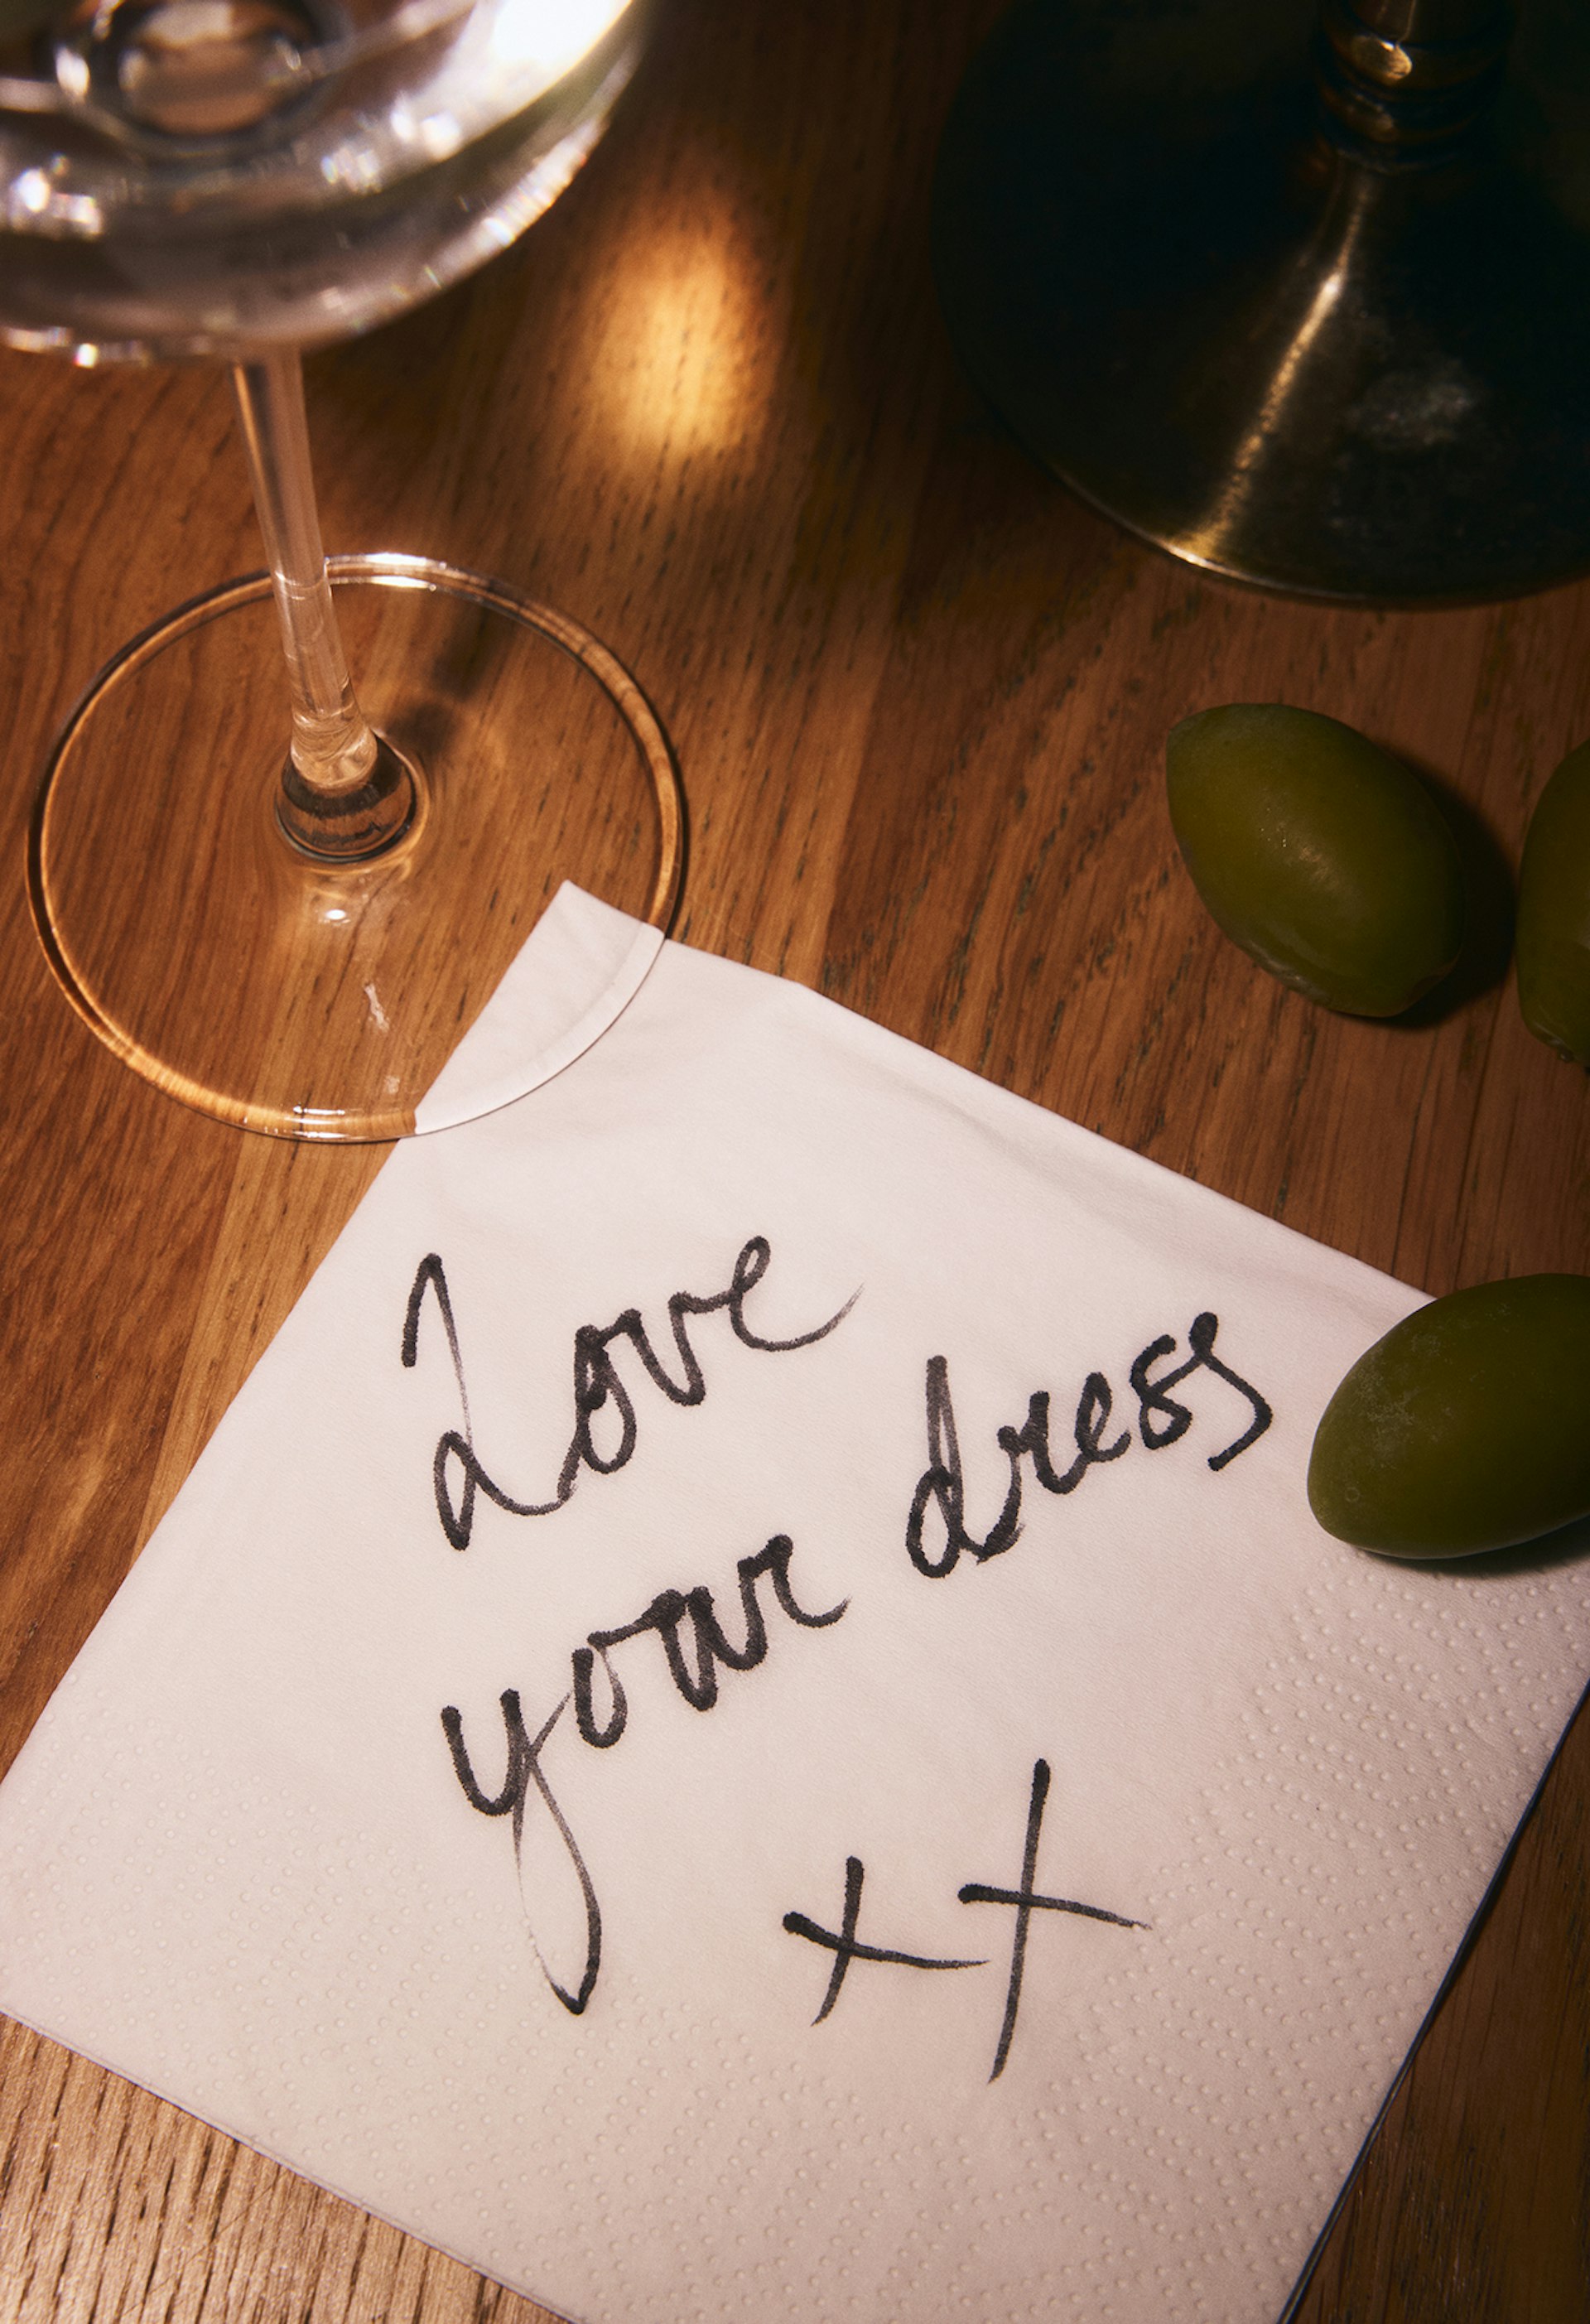 Love
your dress
xx